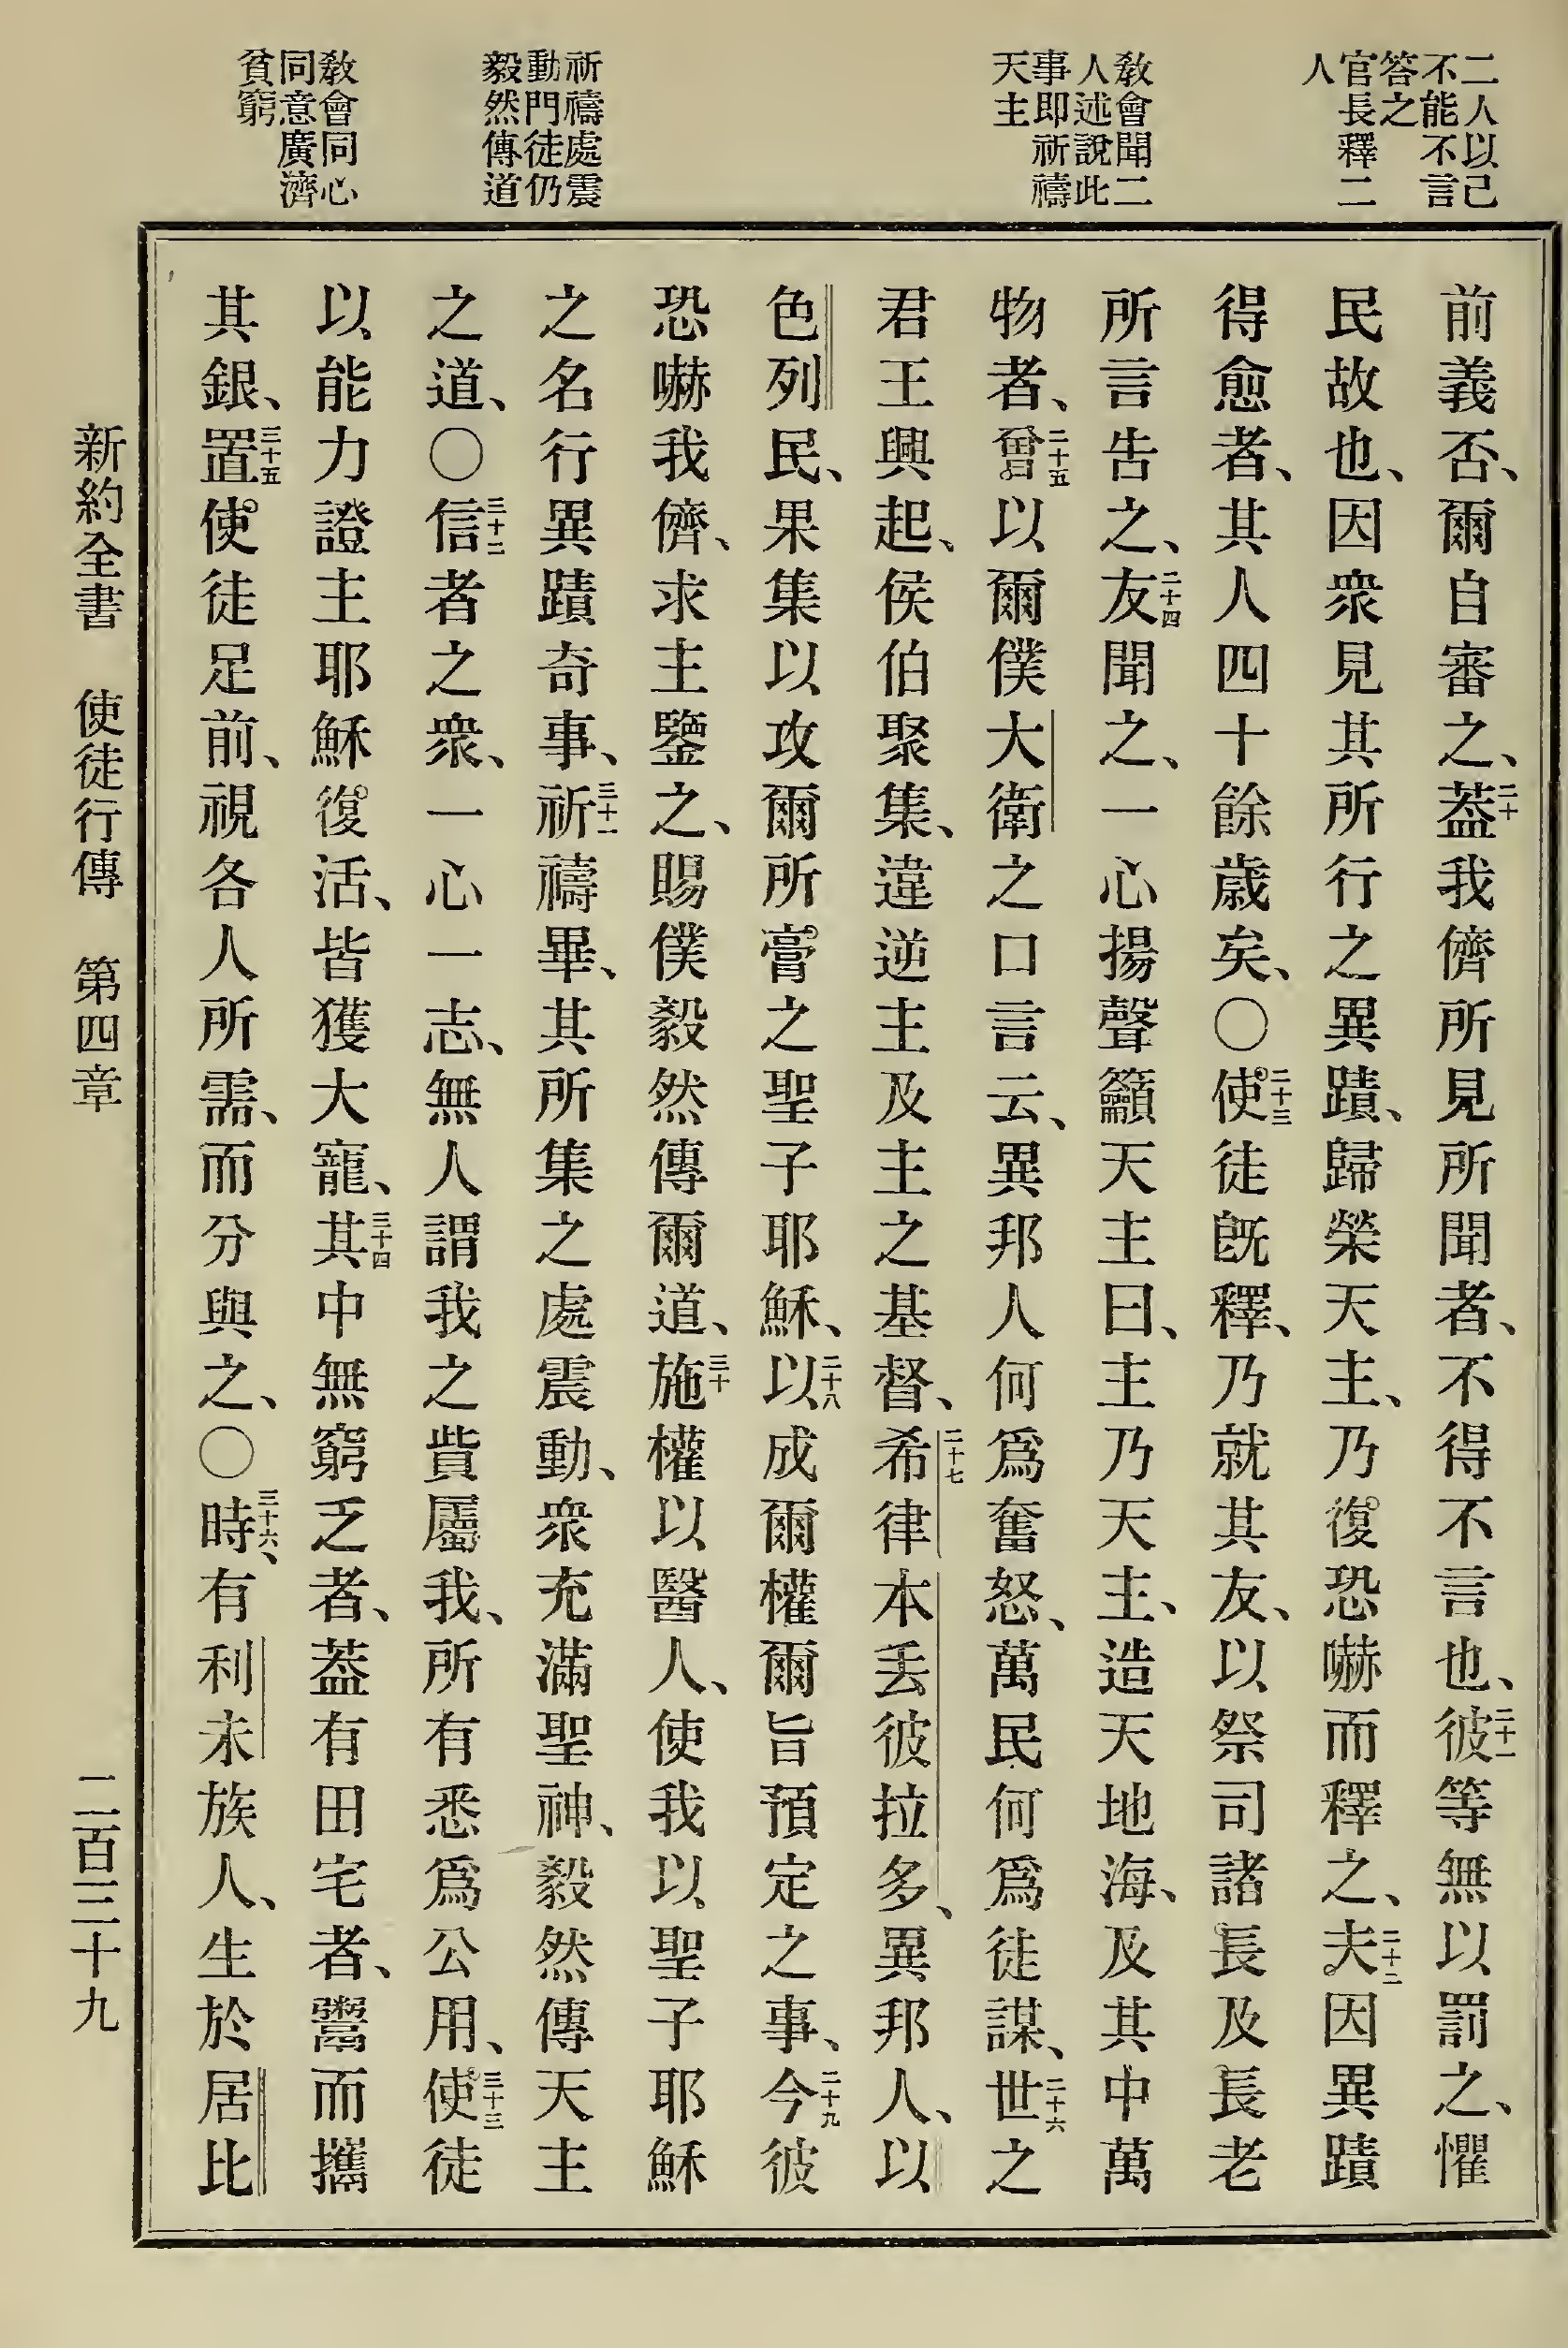 二人以己
不能不言
答之
官長釋二
人
教會聞二
人述說此
事即祈禱
天主
祈禱處震
動門徒仍
毅然傳道
教會同心
同意廣濟
貧窮
前義否、爾自審之、二十蓋我儕所見所聞者、不得不言也、二十一彼等無以罰之、懼
民故也、因衆見其所行之異蹟、歸榮天主、乃復恐嚇而釋之、二十二夫因異蹟
得愈者、其人四十餘歲矣、〇二十三使徒旣釋、乃就其友、以祭司諸長及長老
所言告之、二十四友聞之、一心揚聲籲天主曰、主乃天主、造天地海、及其中萬
物者、二十五曾以爾僕大衛之口言云、異邦人何爲奮怒、萬民何爲徒謀、二十六世之
君王興起、侯伯聚集、違逆主及主之基督、二十七希律本丢彼拉多、異邦人、以
色列民、果集以攻爾所膏之聖子耶穌、二十八以成爾權爾旨預定之事、二十九今彼
恐嚇我儕、求主鑒之、賜僕毅然傳爾道、三十施權以醫人、使我以聖子耶穌
之名行異蹟奇事、三十一祈禱畢、其所集之處震動、衆充滿聖神、毅然傳天主
之道、〇三十二信者之衆、一心一志、無人謂我之貲屬我、所有悉爲公用、三十三使徒
以能力證主耶穌復活、皆獲大寵、三十四其中無窮乏者、蓋有田宅者、鬻而攜
其銀、三十五置使徒足前、視各人所需、而分與之、〇三十六、時有利未族人、生於居比
新約全書 使徒行傳 第四章 二百三十九